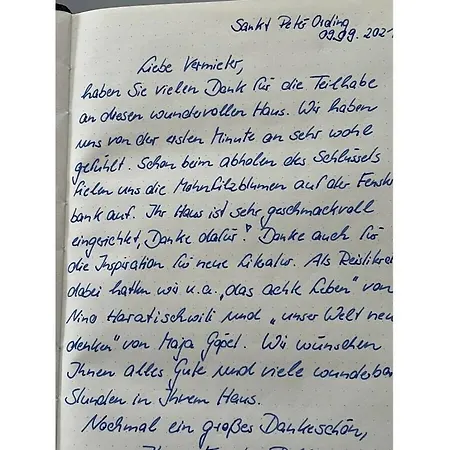 Sankt Peter Ording
09.09.2021
Liebe Vermieter,
haben Sie vielen Dank für die Teilhabe
an diesen wundervollen Haus. Wir haben
uns von der ersten Minute an sehr wohl
gefühlt. Schon beim abholen des Schlüssels
fielen uns die Mohnfilzblumen auf der Fenster
bank auf. Ihr Haus ist sehr geschmackvoll
eingerichtet, Danke dafür! Danke auch für
die Inspiration für neue Literatur. Als
dabei hatten wir u.a. „das achte Leben" von
Nino Haratischwili und „unser Welt neu
denken" von Maja Göpel. Wir wünschen
Ihnen alles Gute und viele wunderbar
Stunden in Ihrem Haus.
Nochmal ein großes Dankeschön,